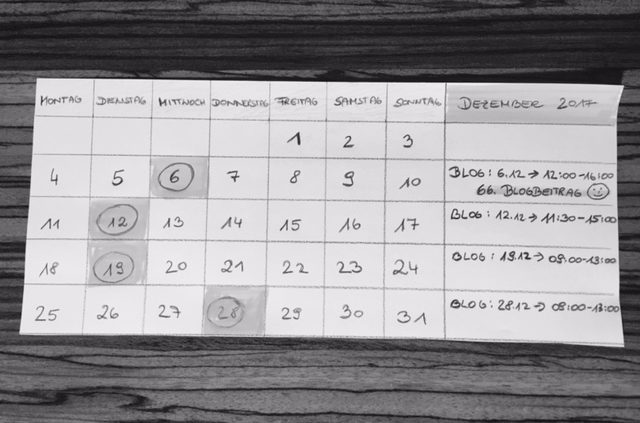 MONTAG DIENSTAG MITTWOCH DONNERSTAG FREITAG SAMSTAG SONNTAG DEZEMBER 2017
1 2 3
4 5 6 7 8 9 10 BLOG: 6.12 → 12:00-16:00
66. BLOGBEITRAG ☺
11 12 13 14 15 16 17 BLOG: 12.12 → 11:30-15:00
18 19 20 21 22 23 24 BLOG: 19.12 → 09:00-13:00
25 26 27 28 29 30 31 BLOG: 28.12 → 08:00-13:00